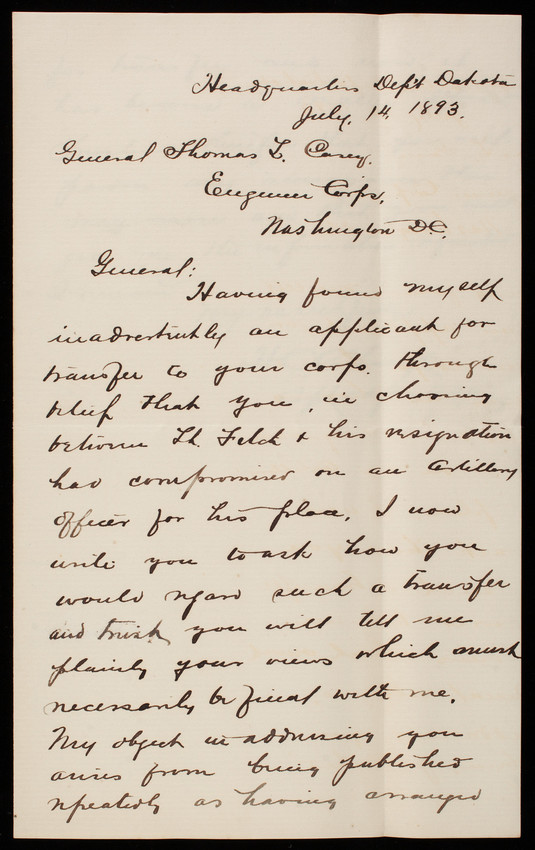 Headquarters Dept Dakota
July, 14, 1893.
General Thomas L. Casey.
Engineer Corps,
Washington D.C.
General:
Having found myself
inadvertently an applicant for
transfer to your corps. through
belief that you, in choosing
between Lt. Felch & his resignation
had compromised on an Artillery
officer for his place, I now
write you to ask how you
would regard such a transfer
and trust you will tell me
plainly your views which must
necessarily be final with me.
My object in addressing you
arises from being published
repeatedly as having arranged